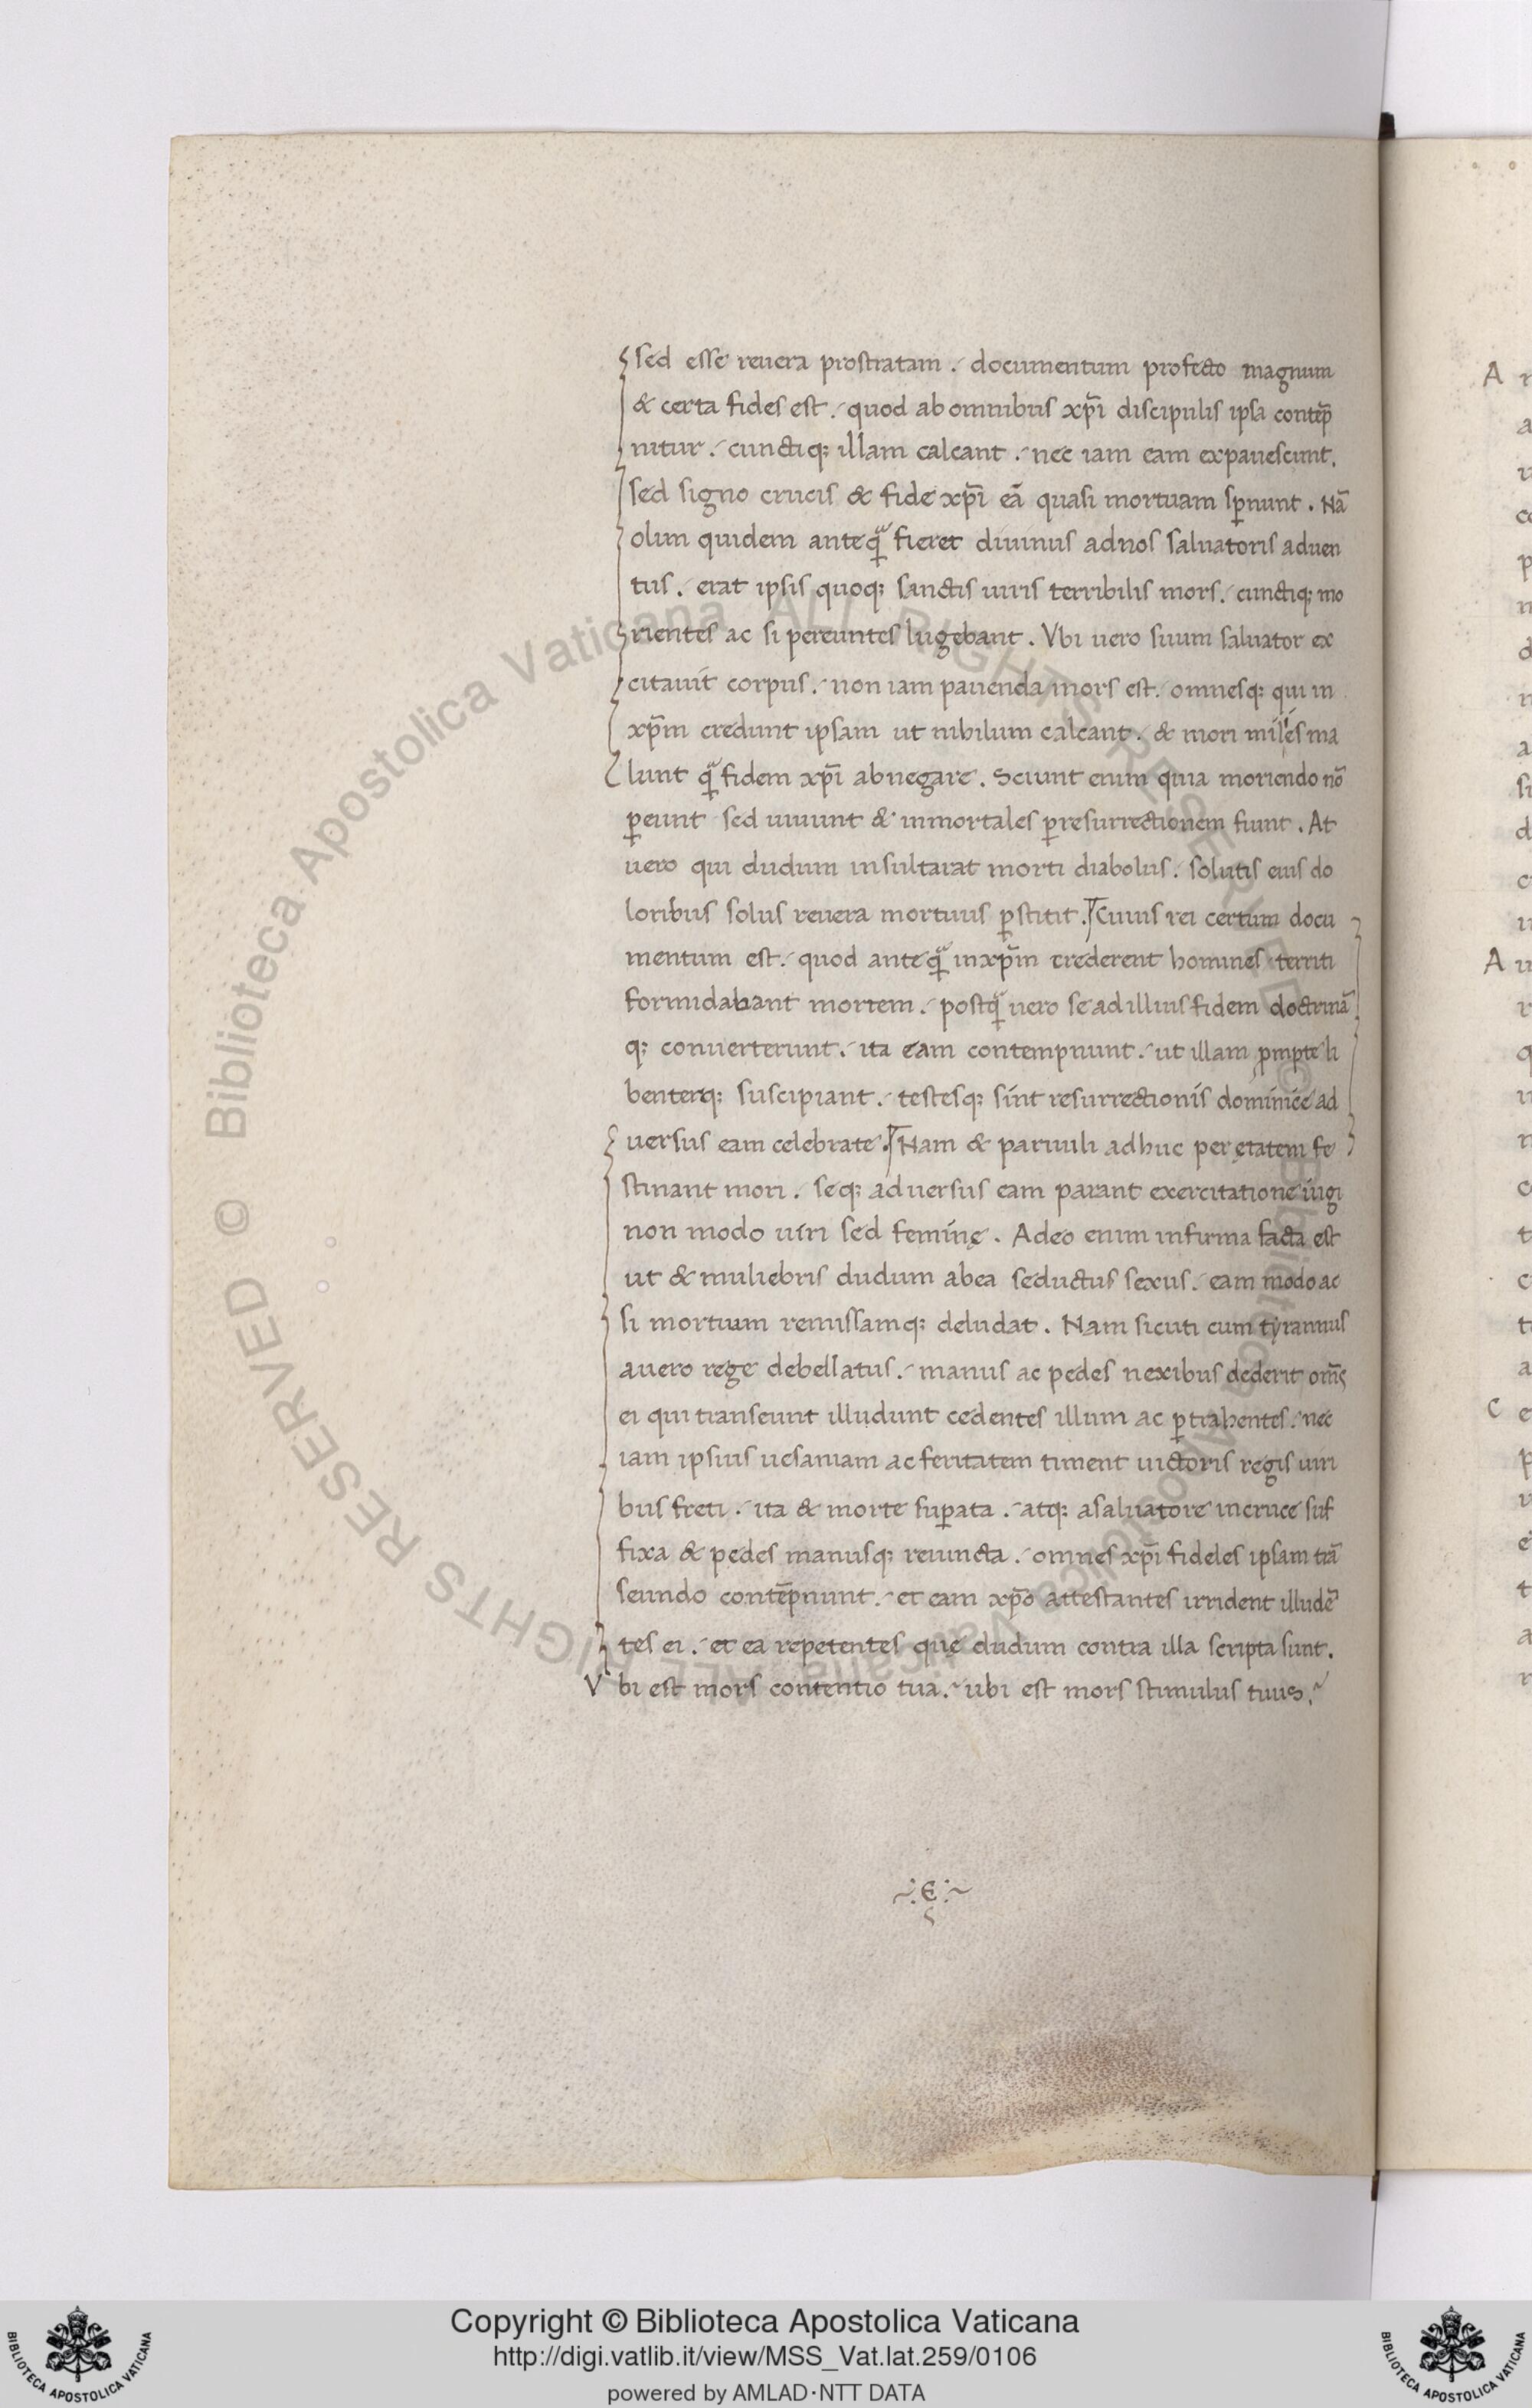 sed esse reuera prostratam. documentum profecto magnum
& certa fides est. quod ab omnibus xp̄i discipulis ipsa contēp
nitur. cunctiq; illam calcant. nec iam eam expauescunt.
sed signo crucis & fide xp̄i eā quasi mortuam sp̄nunt. Nā
olim quidem anteq̄ fieret diuinus ad nos saluatoris aduen
tus. erat ipsis quoq; sanctis uiris terribilis mors. cunctiq; mo
rientes ac si pereuntes lugebant. Vbi uero suum saluator ex
citauit corpus. non iam pauenda mors est. omnesq; qui in
xp̄m credunt ipsam ut nihilum calcant. & mori milies ma
lunt q̄ fidem xp̄i abnegare. Sciunt enim quia moriendo nō
ꝑeunt sed uiuunt & inmortales ꝑ resurrectionem fiunt. At
uero qui dudum insultarat morti diabolus. solutis eius do
loribus solus reuera mortuus ꝑstitit. Cuius rei certum docu
mentum est. quod anteq̄ in xp̄m crederent homines territi
formidabant mortem. postq̄ uero se ad illius fidem doctrinā
q; conuerterunt. ita eam contempnunt. ut illam ꝓmpte li
benterq; suscipiant. testesq; sint resurrectionis dominice ad
uersus eam celebrate. Nam & paruuli adhuc per ętatem fe
stinant mori. seq; aduersus eam parant exercitatione iugi
non modo uiri sed feminę. Adeo enim infirma facta est
ut & muliebris dudum ab ea seductus sexus. eam modo ac
si mortuam remissamq; deludat. Nam sicuti cum tyrannus
a uero rege debellatus. manus ac pedes nexibus dederit om̄s
ei qui transeunt illudunt cedentes illum ac ꝑtrahentes. nec
iam ipsius uesaniam ac feritatem timent uictoris regis uiri
bus freti. ita & morte suꝑata. atq; a saluatore in cruce suf
fixa & pedes manusq; reuincta. omnes xp̄i fideles ipsam trā
seundo contēpnunt. et eam xp̄o attestantes irrident illudē
tes ei. et ea repetentes quę dudum contra illa scripta sunt.
Vbi est mors contentio tua. ubi est mors stimulus tuus.
A
A
C
Biblioteca Apostolica Vaticana ALL RIGHTS RESERVED ©
Copyright © Biblioteca Apostolica Vaticana
http://digi.vatlib.it/view/MSS_Vat.lat.259/0106
powered by AMLAD·NTT DATA
BIBLIOTECA APOSTOLICA VATICANA
BIBLIOTECA APOSTOLICA VATICANA